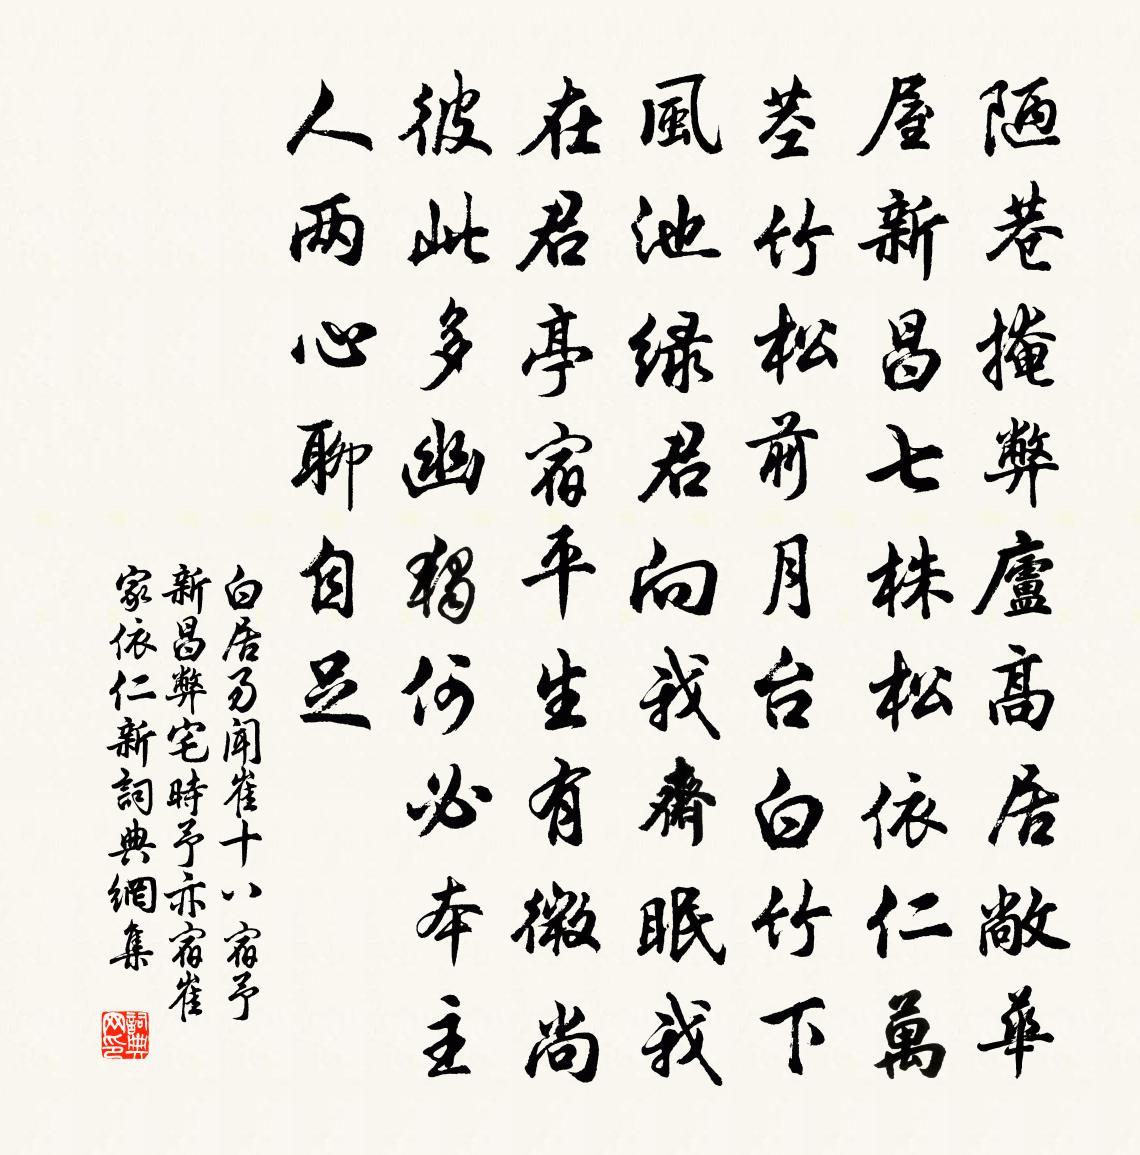 陋巷掩弊廬高居敞華
屋新昌七株松依仁萬
莖竹松前月台白竹下
風池绿君向我齋眠我
在君亭宿平生有微尚
彼此多幽獨何必本主
人两心聊自足
白居易聞崔十八宿予
新昌弊宅時予亦宿崔
家依仁新詞典網集